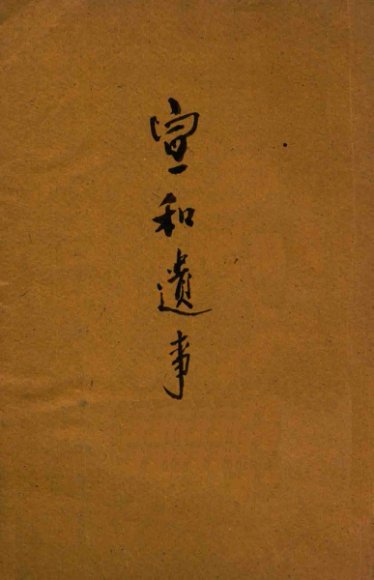 宣和遺事